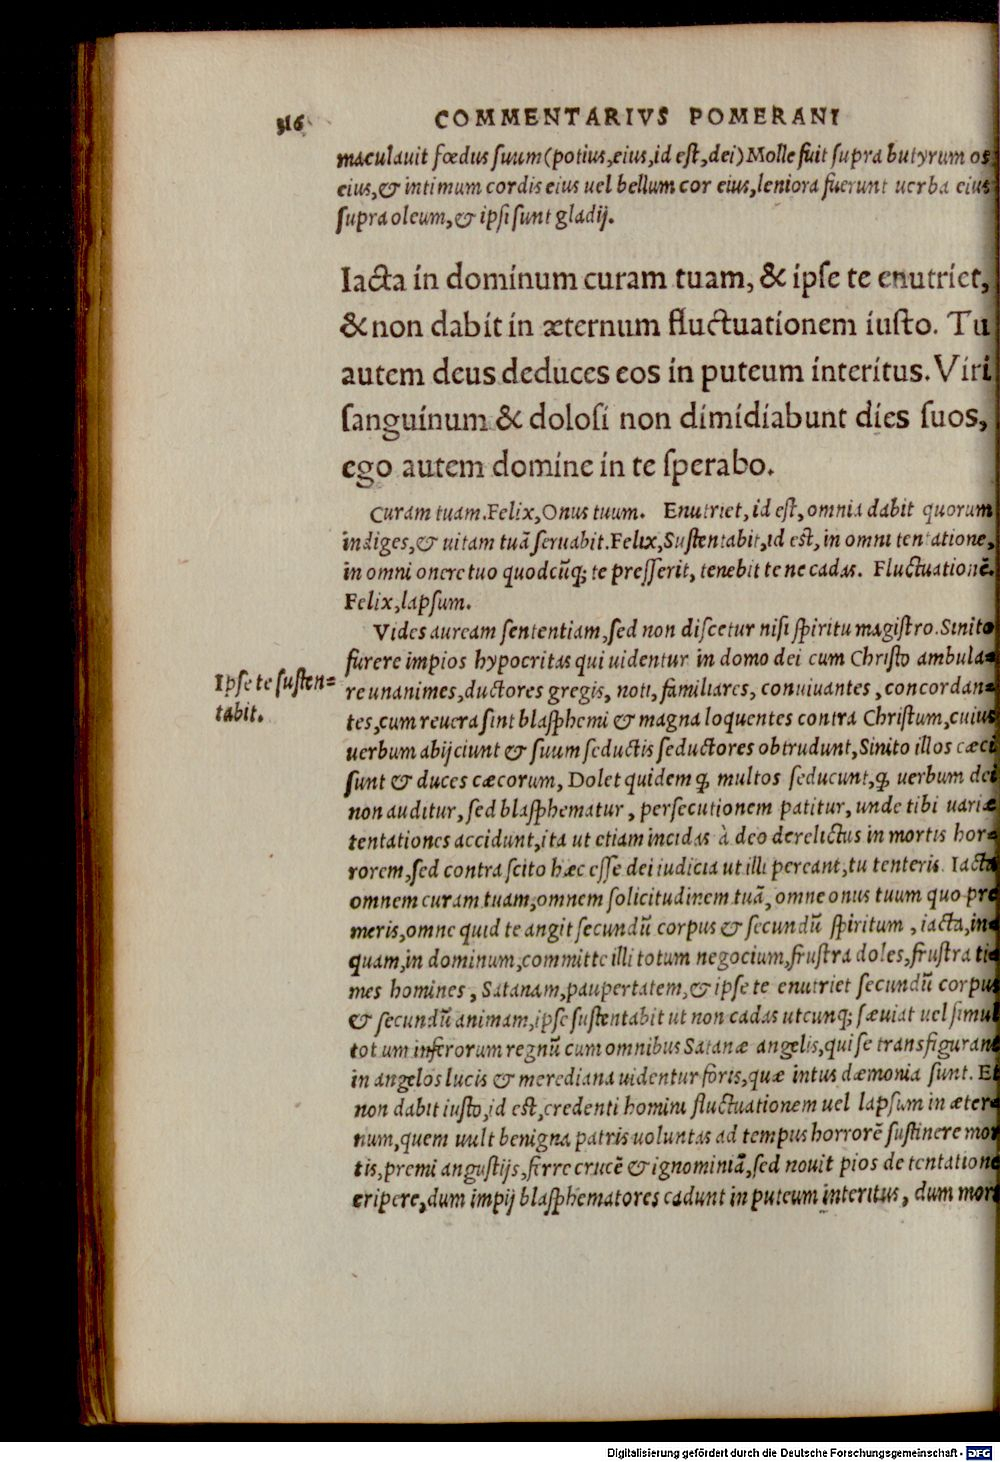 316 COMMENTARIVS POMERANI
maculauit fœdus suum (potius, eius, id est, dei) Molle fuit supra butyrum os
eius, & intimum cordis eius uel bellum cor eius, leniora fuerunt uerba eius
supra oleum, & ipsi sunt gladij.
Iacta in dominum curam tuam, & ipse te enutriet,
& non dabit in æternum fluctuationem iusto. Tu
autem deus deduces eos in puteum interitus. Viri
sanguinum & dolosi non dimidiabunt dies suos,
ego autem domine in te sperabo.
Curam tuam. Felix, Onus tuum. Enutriet, id est, omnia dabit quorum
indiges, & uitam tuā seruabit. Felix, Sustentabit, id est, in omni tentatione,
in omni onere tuo quodcūq; te presserit, tenebit te ne cadas. Fluctuationē.
Felix, lapsum.
Vides auream sententiam, sed non discetur nisi spiritu magistro. Sinito
furere impios hypocritas qui uidentur in domo dei cum Christo ambula-
Ipse te susten=
tabit.
re unanimes, ductores gregis, noti, familiares, conuiuantes, concordan-
tes, cum reuera sint blasphemi & magna loquentes contra Christum, cuius
uerbum abijciunt & suum seductis seductores obtrudunt, Sinito illos cæci
sunt & duces cæcorum, Dolet quidem ꝙ multos seducunt, ꝙ uerbum dei
non auditur, sed blasphematur, persecutionem patitur, unde tibi uariæ
tentationes accidunt, ita ut etiam incidas à deo derelictus in mortis hor-
rorem, sed contra scito hæc esse dei iudicia ut illi pereant, tu tenteris. Iacta
omnem curam tuam, omnem solicitudinem tuā, omne onus tuum quo pre
meris, omne quid te angit secundū corpus & secundū spiritum, iacta, in-
quam, in dominum, committe illi totum negocium, frustra doles, frustra ti-
mes homines, Satanam, paupertatem, & ipse te enutriet secundū corpus
& secundū animam, ipse sustentabit ut non cadas utcunq; sæuiat uel simul
totum inferorum regnū cum omnibus Satanæ angelis, qui se transfigurant
in angelos lucis & merediana uidentur foris, quæ intus dæmonia sunt. Et
non dabit iusto, id est, credenti homini fluctuationem uel lapsum in æter-
num, quem uult benigna patris uoluntas ad tempus horrorē sustinere mor
tis, premi angustijs, ferre crucē & ignominiā, sed nouit pios de tentatione
eripere, dum impij blasphematores cadunt in puteum interitus, dum mort
Digitalisierung gefördert durch die Deutsche Forschungsgemeinschaft - DFG